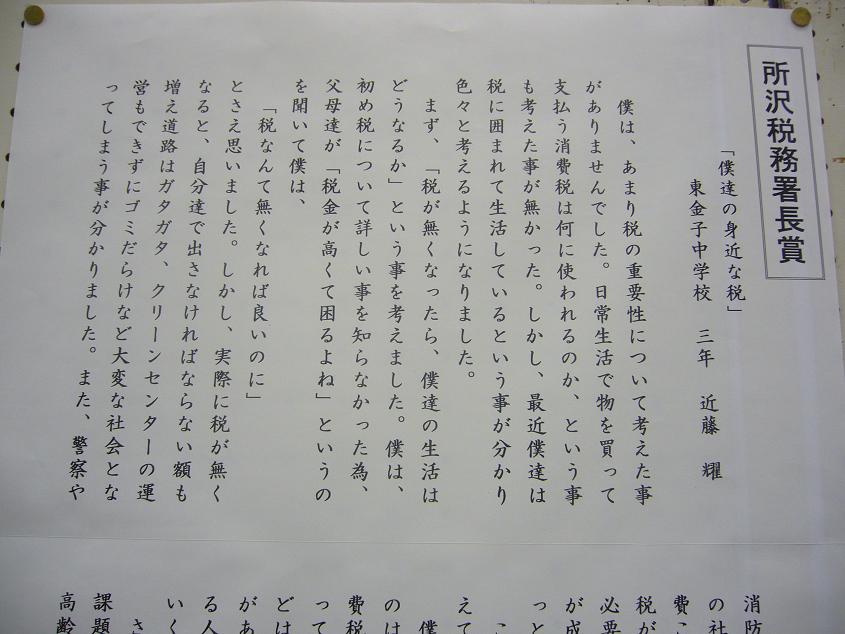 所沢税務署長賞
「僕達の身近な税」
東金子中学校 三年 近藤 耀
僕は、あまり税の重要性について考えた事
がありませんでした。日常生活で物を買って
支払う消費税は何に使われるのか、という事
も考えた事が無かった。しかし、最近僕達は
税に囲まれて生活しているという事が分かり
色々と考えるようになりました。
まず、「税が無くなったら、僕達の生活は
どうなるか」という事を考えました。僕は、
初め税について詳しい事を知らなかった為、
父母達が「税金が高くて困るよね」というの
を聞いて僕は、
「税なんて無くなれば良いのに」
とさえ思いました。しかし、実際に税が無く
なると、自分達で出さなければならない額も
増え道路はガタガタ、クリーンセンターの運
営もできずにゴミだらけなど大変な社会とな
ってしまう事が分かりました。また、警察や
消防
の社
費こ
税が
必要
が成
っと
こ
えて
僕
のは
費税
って
どは
があ
る人
いく
さ
課題
高齢